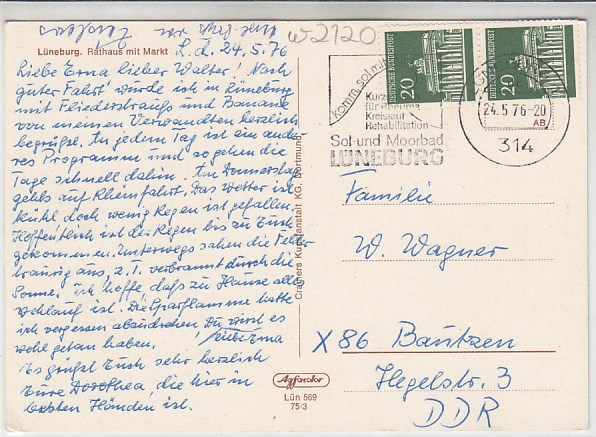 w2120
Lüneburg. Rathaus mit Markt
L. d. 24.5.76
Liebe Erna lieber Walter! Nach
guter Fahrt wurde ich in Lüneburg
mit Fliederstrauß und Banane
von meinen Verwandten herzlich
begrüßt. An jedem Tag ist ein ande=
res Programm und so gehen die
Tage schnell dahin. Am Donnerstag
gehts auf Rheinfahrt. Das Wetter ist
kühl doch wenig Regen ist gefallen.
Hoffentlich ist der Regen bis zu Euch
gekommen. Unterwegs sahen die Felder
traurig aus, z.T. verbrannt durch die
Sonne. Ich hoffe daß zu Hause alles
wohlauf ist. Die Sparflamme hatte
ich vergessen abzudrehen Du wirst es
wohl getan haben. liebe Erna
Es grüßt Euch sehr herzlich
Eure Dorothea, die hier in
besten Händen ist.
Cramers Kunstanstalt KG, Dortmund
Agfacolor
Lün 569
75/3
Komm, sol mit
Kurz
für Rheuma
Kreislauf
Rehabilitation
Sol- und Moorbad
LÜNEBURG
DEUTSCHE BUNDESPOST
20
DEUTSCHE BUNDESPOST
20
24.5.76-20
AB
314
Familie
W. Wagner
X 86 Bautzen
Hegelstr. 3
DDR